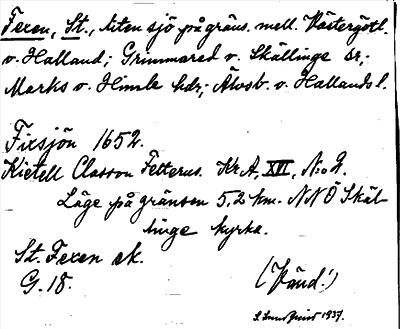 Fexen, St., liten sjö på gräns. mell. Västergötl.
v. Halland; Grimmared v. Skällinge sr,
Marks v. Himle hdr; Älvsb. v. Hallands l.
Fixsjön 1652.
Kietell Classon Fetterus. Kr. A, XVI, No 2.
Läge på gränsen 5,2 km. NNÖ Skäl-
linge kyrka.
St. Fexen ek.
G. 18.
(Vänd!)
1937.